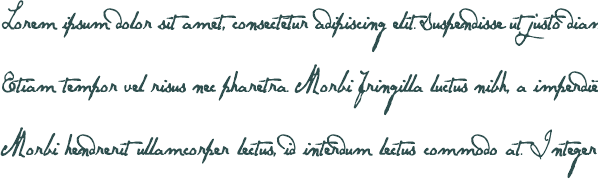 Lorem ipsum dolor sit amet, consectetur adipiscing elit. Suspendisse ut justo diam
Etiam tempor vel risus nec pharetra. Morbi fringilla luctus nibh, a imperdie
Morbi hendrerit ullamcorper lectus, id interdum lectus commodo at. Integer